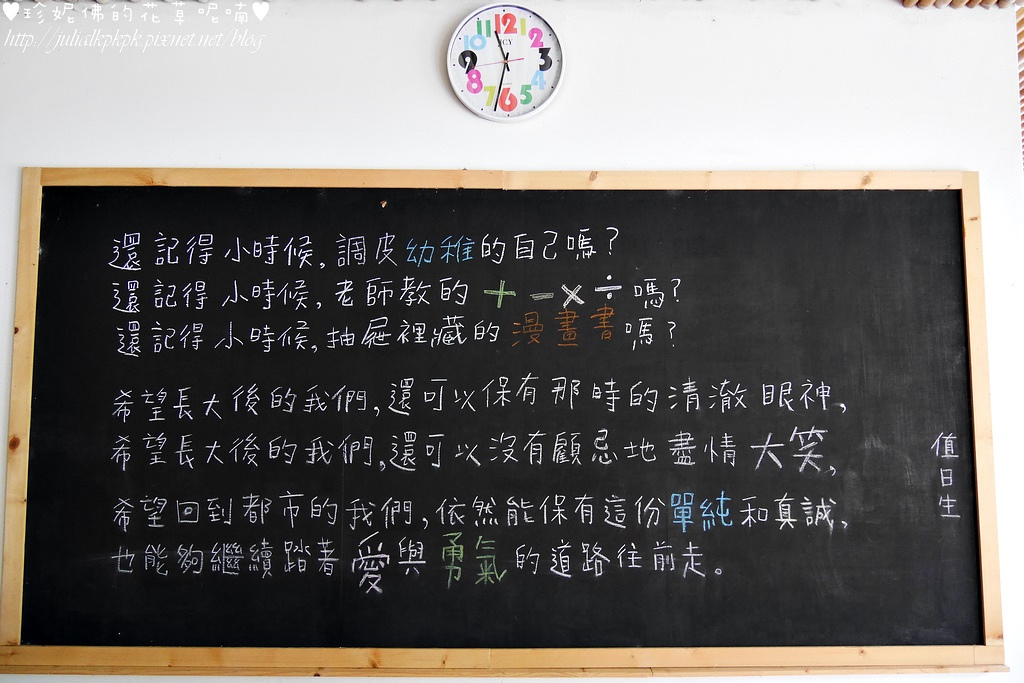 ♥珍妮佛的花草呢喃♥
http://julialkpkpk.pixnet.net/blog
11 12 1
10 2
9 3
8 4
7 6 5
還記得小時候,調皮幼稚的自己嗎?
還記得小時候,老師教的+-×÷嗎?
還記得小時候,抽屜裡藏的漫畫書嗎?
希望長大後的我們,還可以保有那時的清澈眼神,
希望長大後的我們,還可以沒有顧忌地盡情大笑,
值日生
希望回到都市的我們,依然能保有這份單純和真誠,
也能夠繼續踏著愛與勇氣的道路往前走。